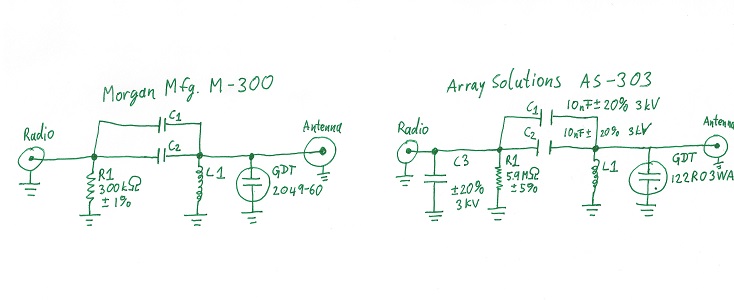 Morgan Mfg. M-300
C1
Radio
Antenna
C2
R1
300kΩ
±1%
L1
GDT
2049-60
Array Solutions AS-303
C1
10nF±20% 3kV
Radio
C2
10nF±20% 3kV
Antenna
C3
±20%
3kV
R1
5.9MΩ
±5%
L1
GDT
122R03WA